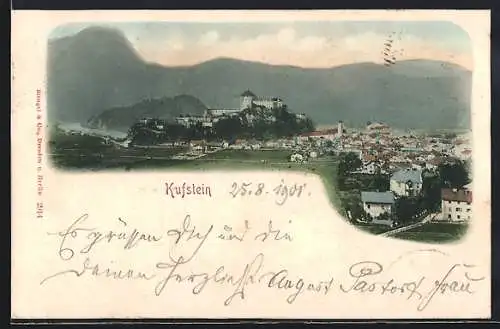 Kufstein 25.8.1901
Es grüssen Dich und die
Deinen herzlichst August Pastor u. Frau
Röngel & Co, Dresden u. Berlin 2914